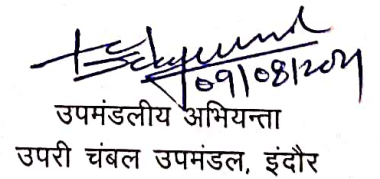 09/08/2021
उपमंडलीय अभियन्ता
उपरी चंबल उपमंडल, इंदौर